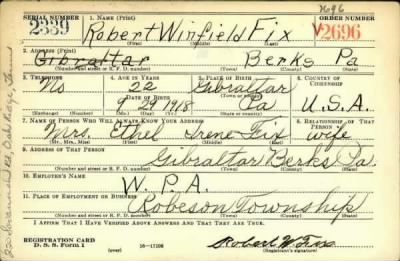 7696
SERIAL NUMBER 1. NAME (Print) ORDER NUMBER
2339 Robert Winfield Fix V2696
(First) (Middle) (Last)
2. ADDRESS (Print)
Gibraltar Berks Pa
(Number and street or R. F. D. number) (Town) (County) (State)
3. TELEPHONE 4. AGE IN YEARS 5. PLACE OF BIRTH 6. COUNTRY OF CITIZENSHIP
No 22 Gibraltar
DATE OF BIRTH (Town or county)
9 29 1918 Pa U.S.A.
(Exchange) (Number) (Mo.) (Day) (Yr.) (State or country)
7. NAME OF PERSON WHO WILL ALWAYS KNOW YOUR ADDRESS 8. RELATIONSHIP OF THAT PERSON
Mrs. Ethel Irene Fix wife
(Mr., Mrs., Miss) (First) (Middle) (Last)
9. ADDRESS OF THAT PERSON
Gibraltar Berks Pa.
(Number and street or R. F. D. number) (Town) (County) (State)
10. EMPLOYER'S NAME
W.P.A.
11. PLACE OF EMPLOYMENT OR BUSINESS
Robeson Township
(Number and street or R. F. D. number) (Town) (County) (State)
I AFFIRM THAT I HAVE VERIFIED ABOVE ANSWERS AND THAT THEY ARE TRUE.
REGISTRATION CARD
D. S. S. Form 1 16-17105 Robert W Fix
Rd, Oak Ridge, Tenn